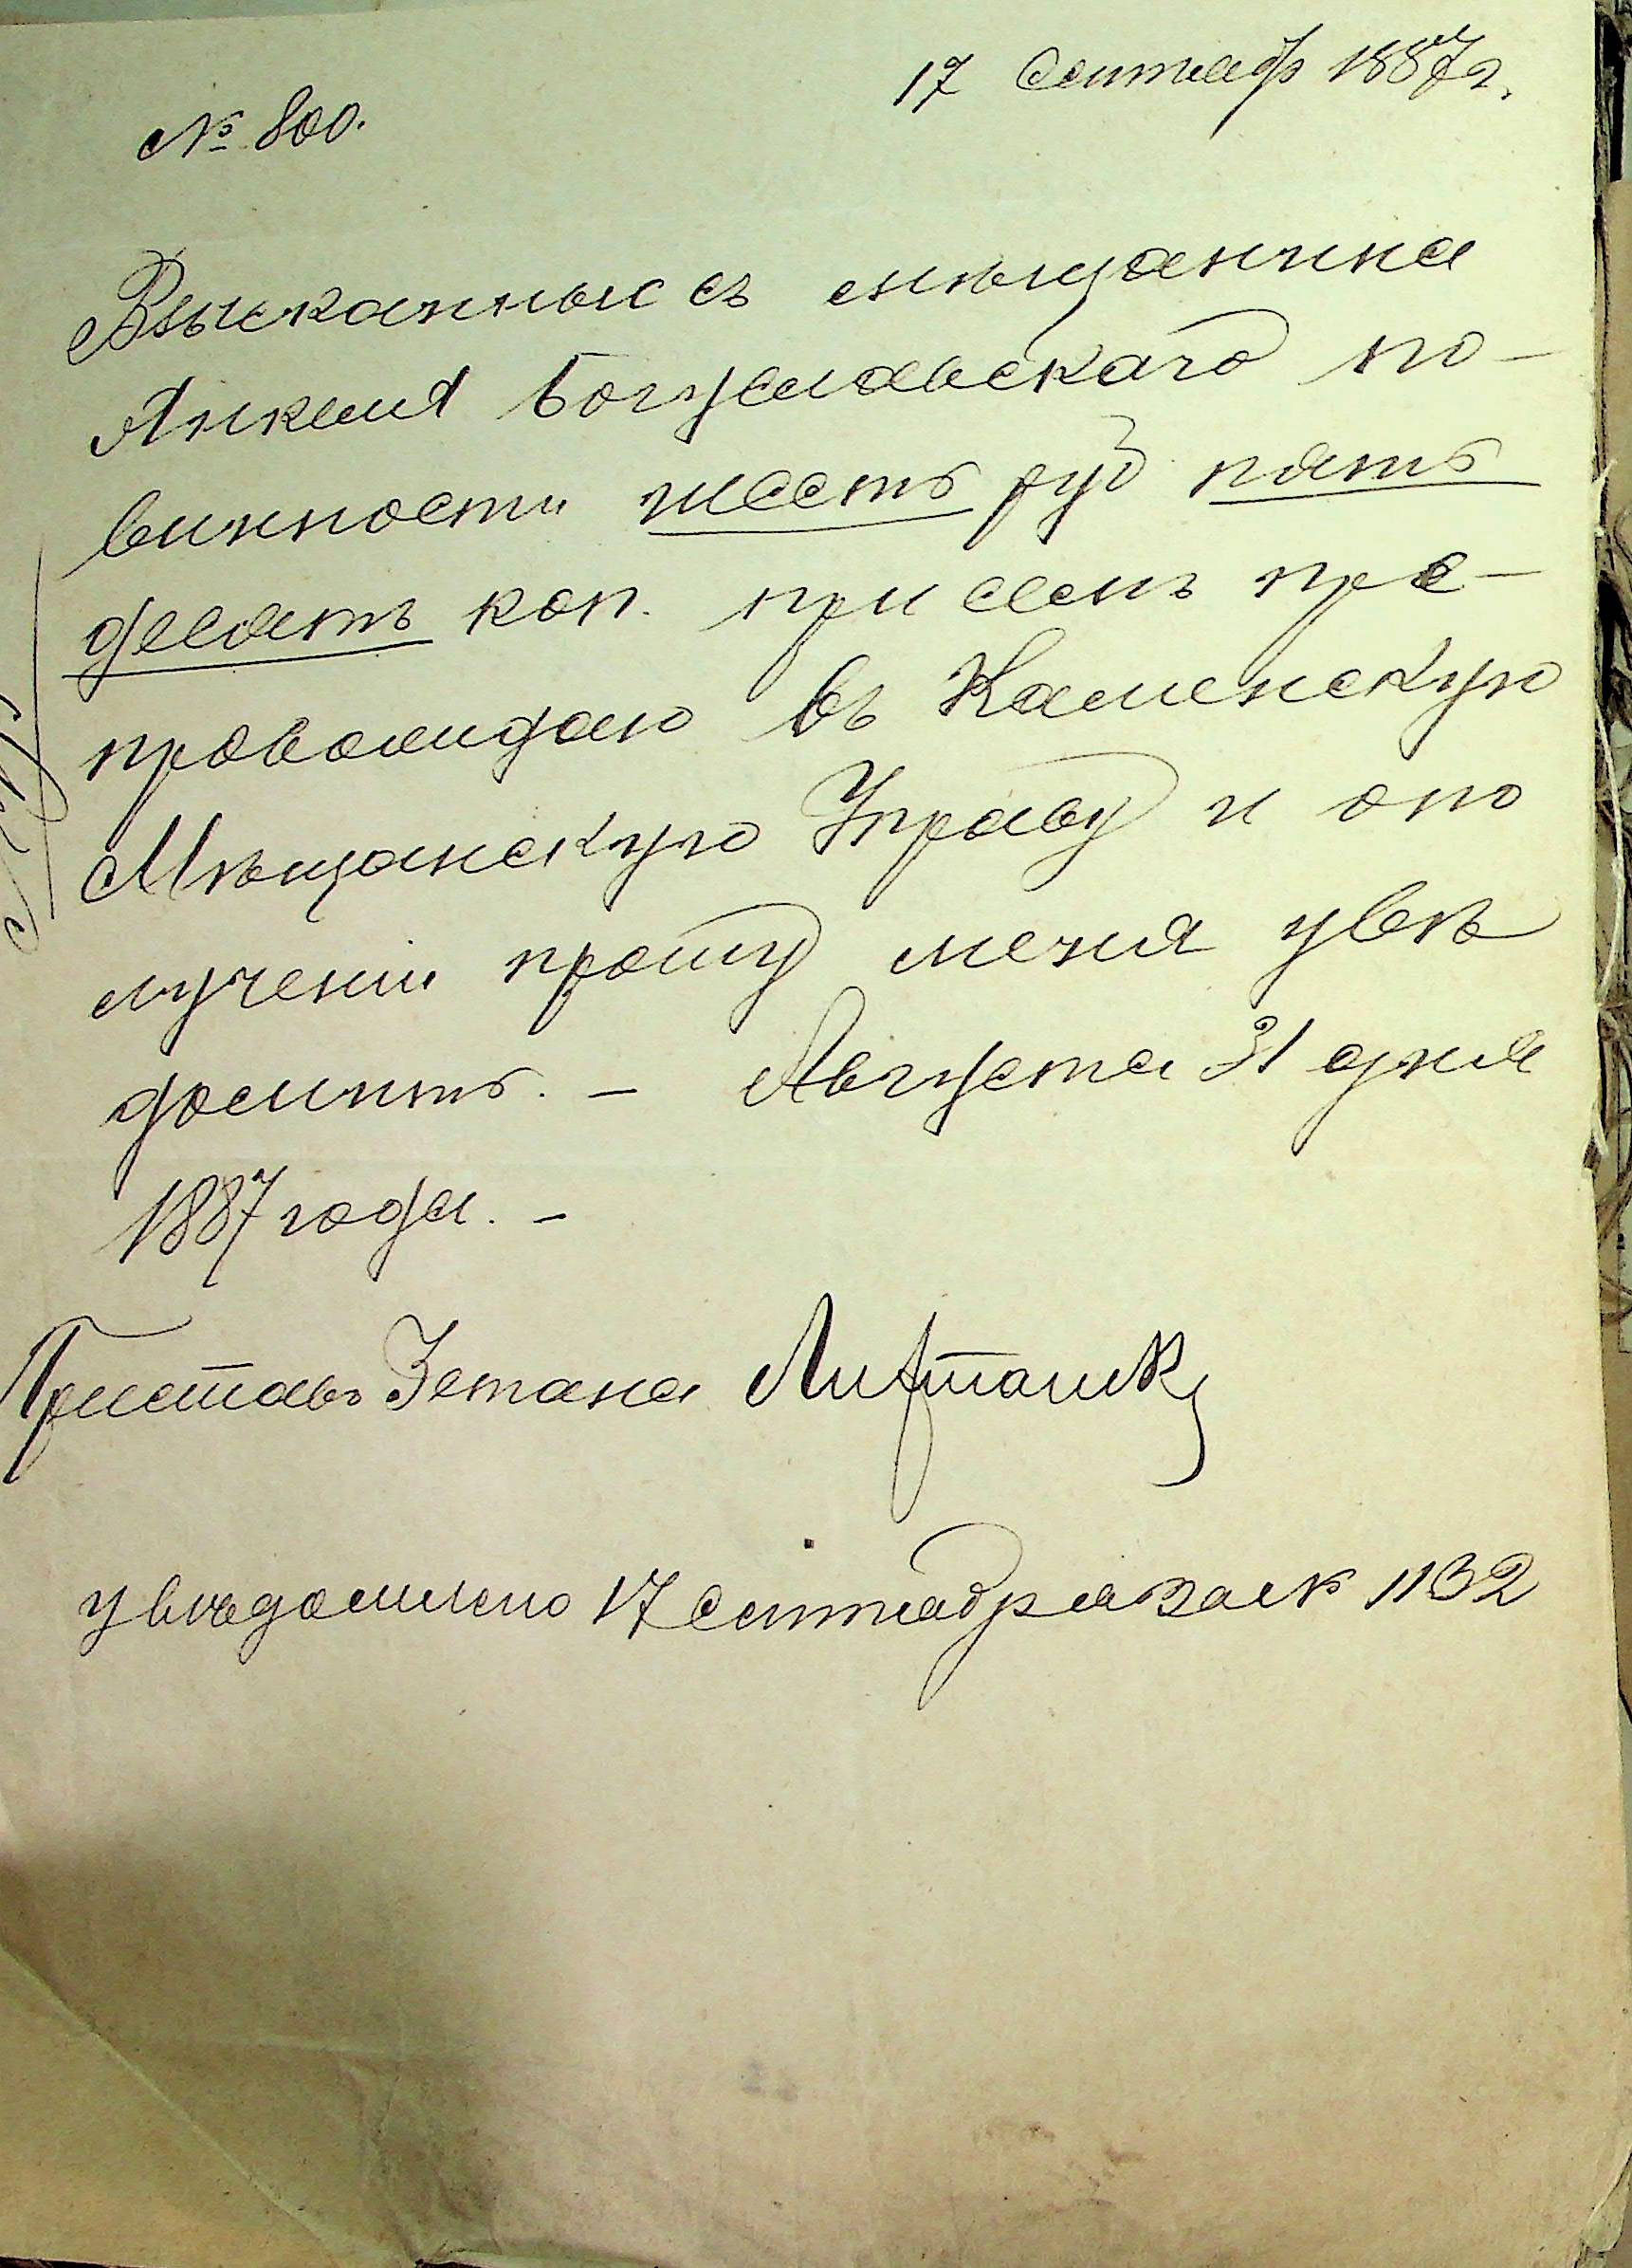 17 Сентябр 1887 г.
№ 800.
Взысканныя съ мѣщанина
Янкеля Богуславскаго по-
винности шесть руб пять
десятъ коп. при семъ пре-
провождаю въ Каменскую
Мѣщанскую Управу и о по
лученіи прошу меня увѣ
домить. – Августа 31 дня
1887 года. –
Приставъ 3 стана
увѣдомлено 17 Сентября за № 1132